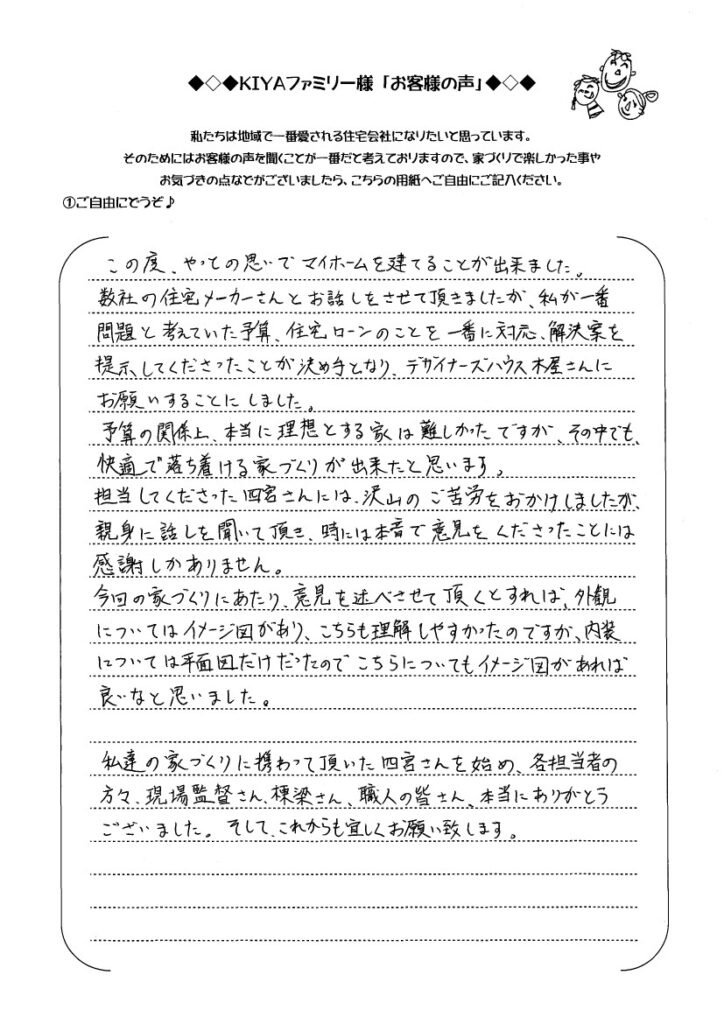 ◆◇◆KIYAファミリー様「お客様の声」◆◇◆
私たちは地域で一番愛される住宅会社になりたいと思っています。
そのためにはお客様の声を聞くことが一番だと考えておりますので、家づくりで楽しかった事や
お気づきの点などがございましたら、こちらの用紙へご自由にご記入ください。
①ご自由にどうぞ♪
この度、やっとの思いでマイホームを建てることが出来ました。
数社の住宅メーカーさんとお話しをさせて頂きましたが、私が一番
問題と考えていた予算、住宅ローンのことを一番に対応、解決案を
提示してくださったことが決め手となり、デザイナーズハウス木屋さんに
お願いすることにしました。
予算の関係上、本当に理想とする家は難しかったですが、その中でも、
快適で落ち着ける家づくりが出来たと思います。
担当してくださった四宮さんには、沢山のご苦労をおかけしましたが、
親身に話しを聞いて頂き、時には本音で意見をくださったことには
感謝しかありません。
今回の家づくりにあたり、意見を述べさせて頂くとすれば、外観
についてはイメージ図があり、こちらも理解しやすかったのですが、内装
については平面図だけだったのでこちらについてもイメージ図があれば
良いなと思いました。
私達の家づくりに携わって頂いた四宮さんを始め、各担当者の
方々、現場監督さん、棟梁さん、職人の皆さん、本当にありがとう
ございました。そして、これからも宜しくお願い致します。